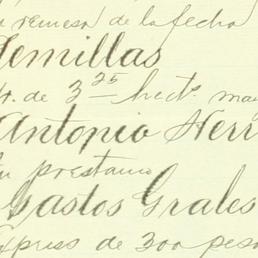 remesa de la fecha
Semillas
de 3 25 hect.
Antonio Herr
su prestamo
Gastos Grales
Expreso de 300 peso